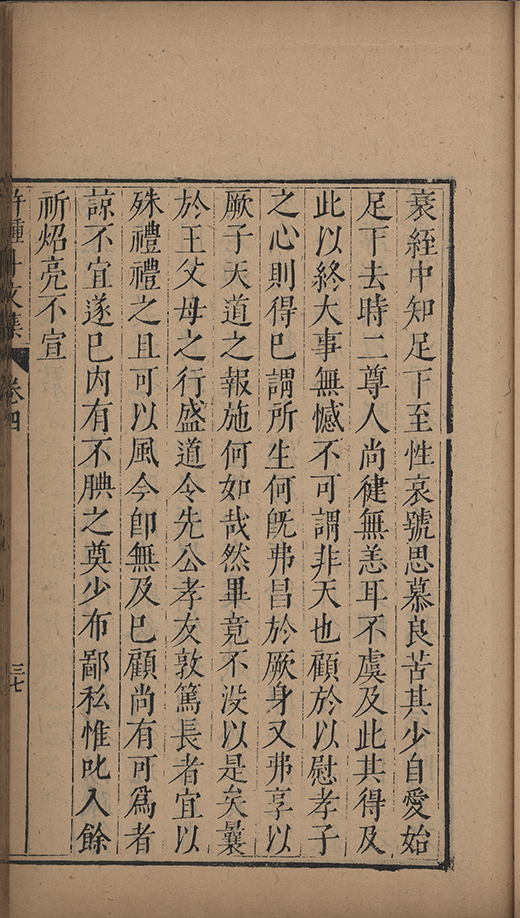 衰絰中知足下至性哀號思慕良苦其少自愛始
足下去時二尊人尚健無恙耳不虞及此其得及
此以終大事無憾不可謂非天也顧於以慰孝子
之心則得巳謂所生何旣弗昌於厥身又弗享以
厥子天道之報施何如哉然畢竟不没以是矣曩
於王父母之行盛道令先公孝友敦篤長者宜以
殊禮禮之且可以風今卽無及巳顧尚有可爲者
諒不宜遂巳内有不腆之奠少布鄙私惟叱入餘
祈炤亮不宣
許鍾斗文集 卷四 三七